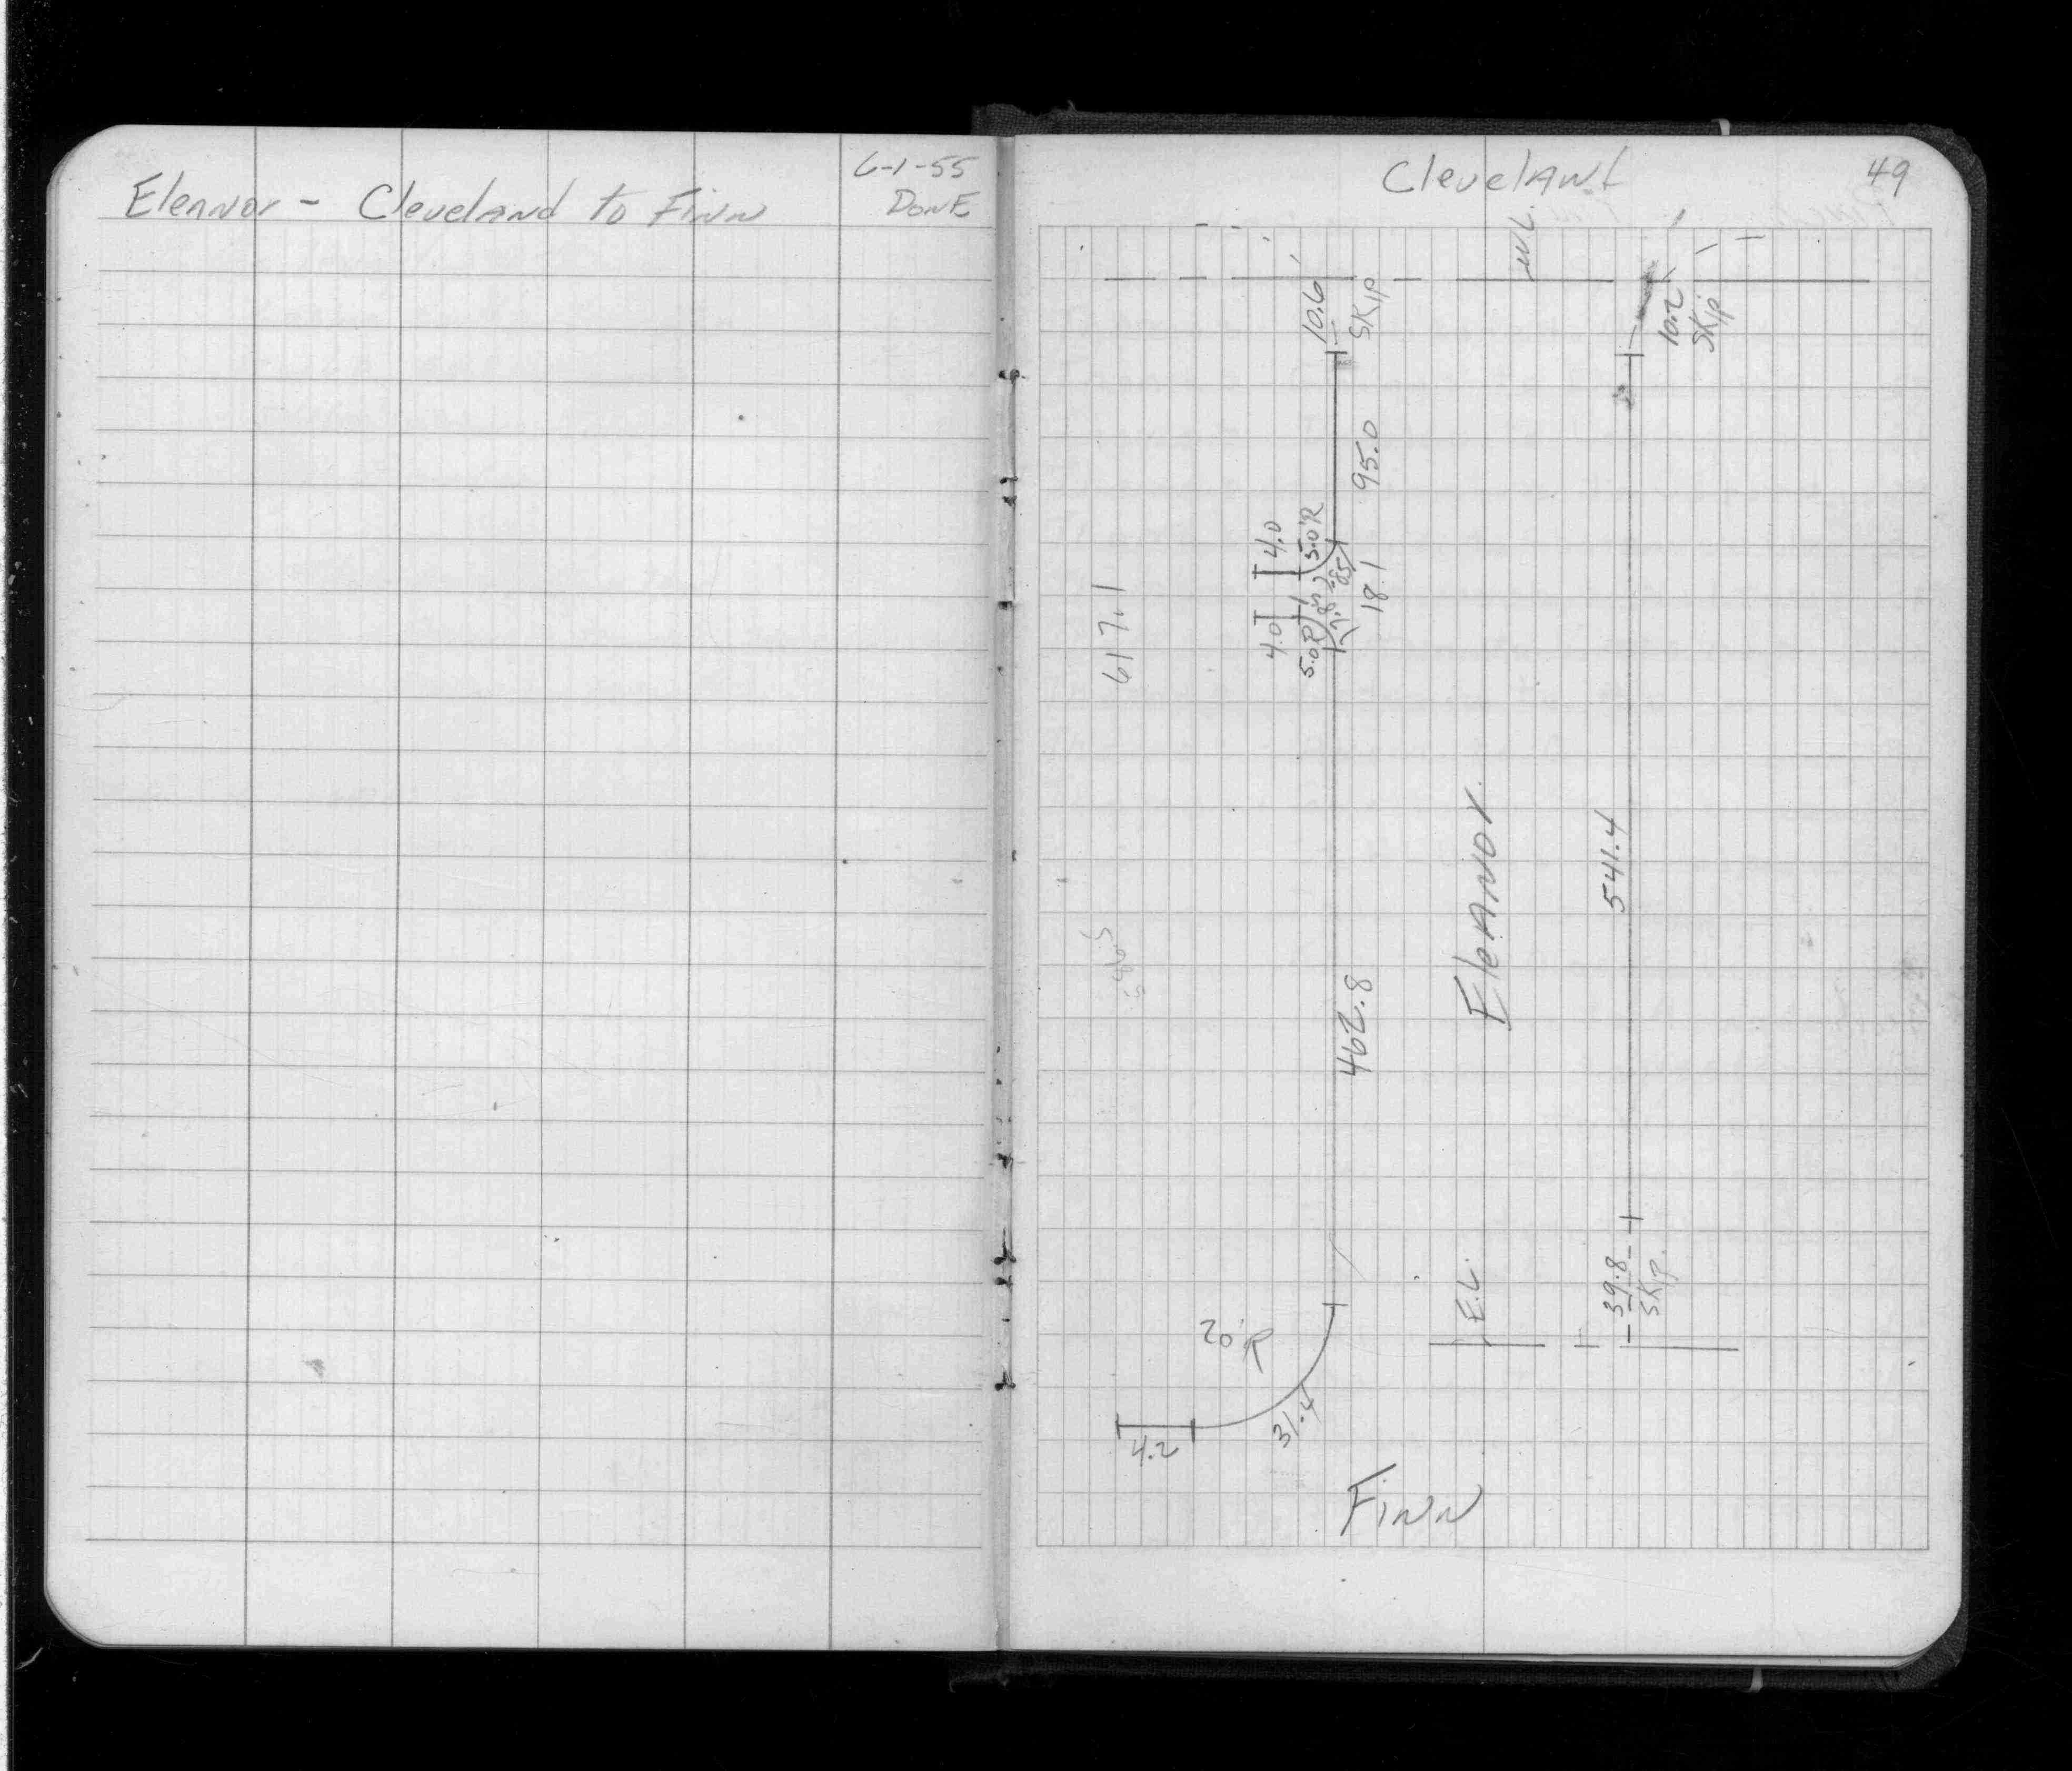 6-1-55
Eleanor - Cleveland to Finn
DONE
Cleveland
49
W.L.
10.6
SKIP
10.2
SKIP
95.0
4.0
5.0'R
4.0
5.0'R
18.1
617.1
Eleanor
541.4
462.8
E.L.
39.8
SKIP
20'R
31.4
4.2
Finn